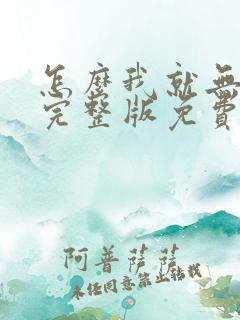 怎麼我就無
完整版免費
阿普薩薩
未經同意禁止轉載